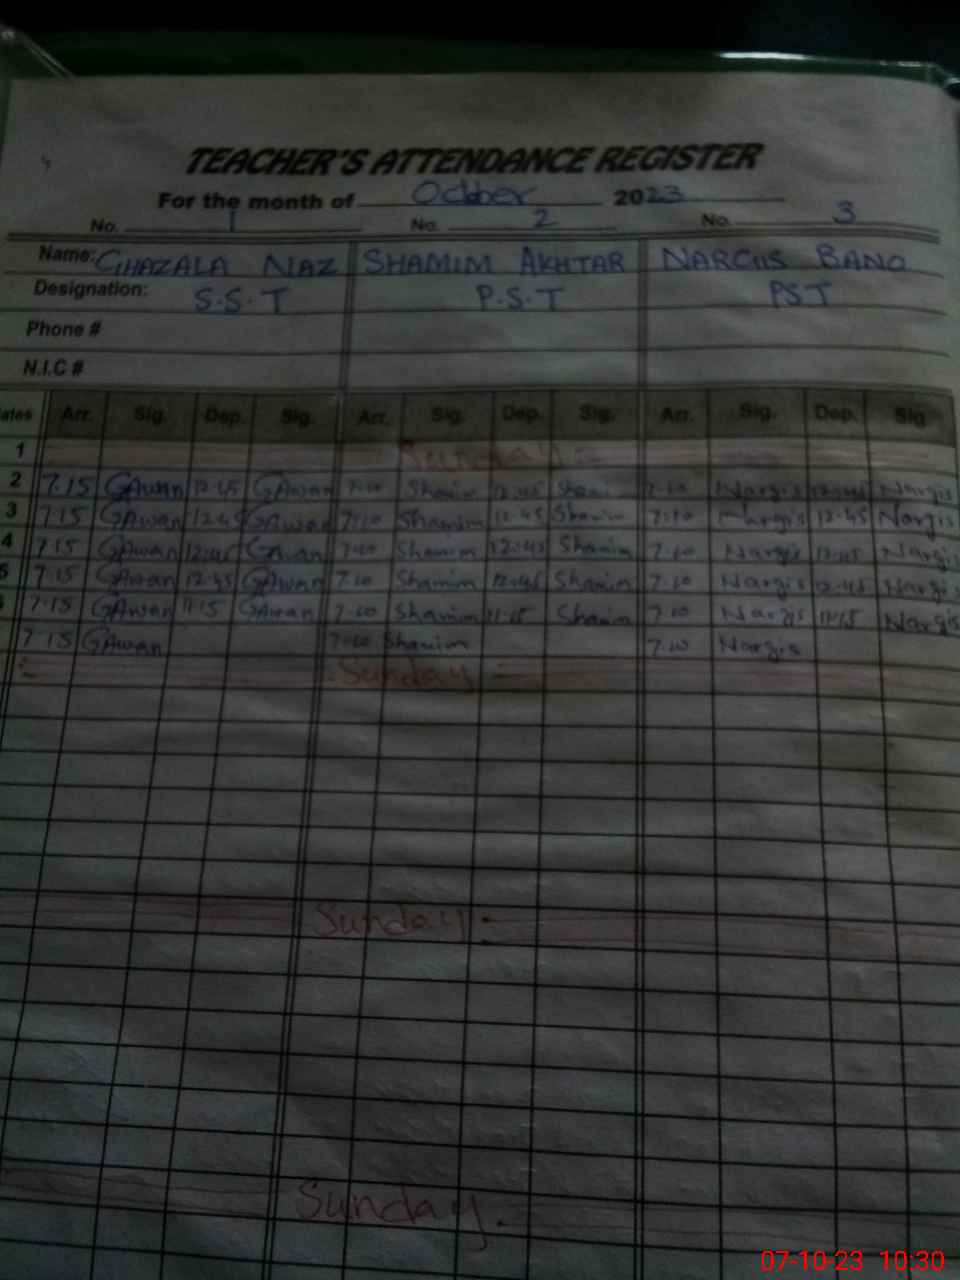 TEACHER'S ATTENDANCE REGISTER
For the month of October 2023
No. 1 No. 2 No. 3
Name: GHAZALA NAZ SHAMIM AKHTAR NARGIS BANO
Designation: S.S.T P.S.T PST
Phone #
N.I.C #
ates Arr. Sig. Dep. Sig. Arr. Sig. Dep. Sig. Arr. Sig. Dep. Sig
1 Sunday
2 7.15 GAwan 12.45 GAwan 7.10 Shamim 12.45 Shami 7.10 Nargis 12.45 Nargis
3 7.15 GAwan 12.45 GAwan 7.10 Shamim 12.45 Shamim 7.10 Nargis 12.45 Nargis
4 7.15 GAwan 12.45 GAwan 7.10 Shamim 12.45 Shamim 7.10 Nargis 12.45 Nargis
5 7.15 GAwan 12.45 GAwan 7.10 Shamim 12.45 Shamim 7.10 Nargis 12.45 Nargis
7.15 GAwan 11.15 GAwan 7.10 Shamim 11.15 Shamim 7.10 Nargis 11.15 Nargis
7.15 GAwan 7.10 Shamim 7.10 Nargis
Sunday
Sunday
Sunday
07-10-23 10:30